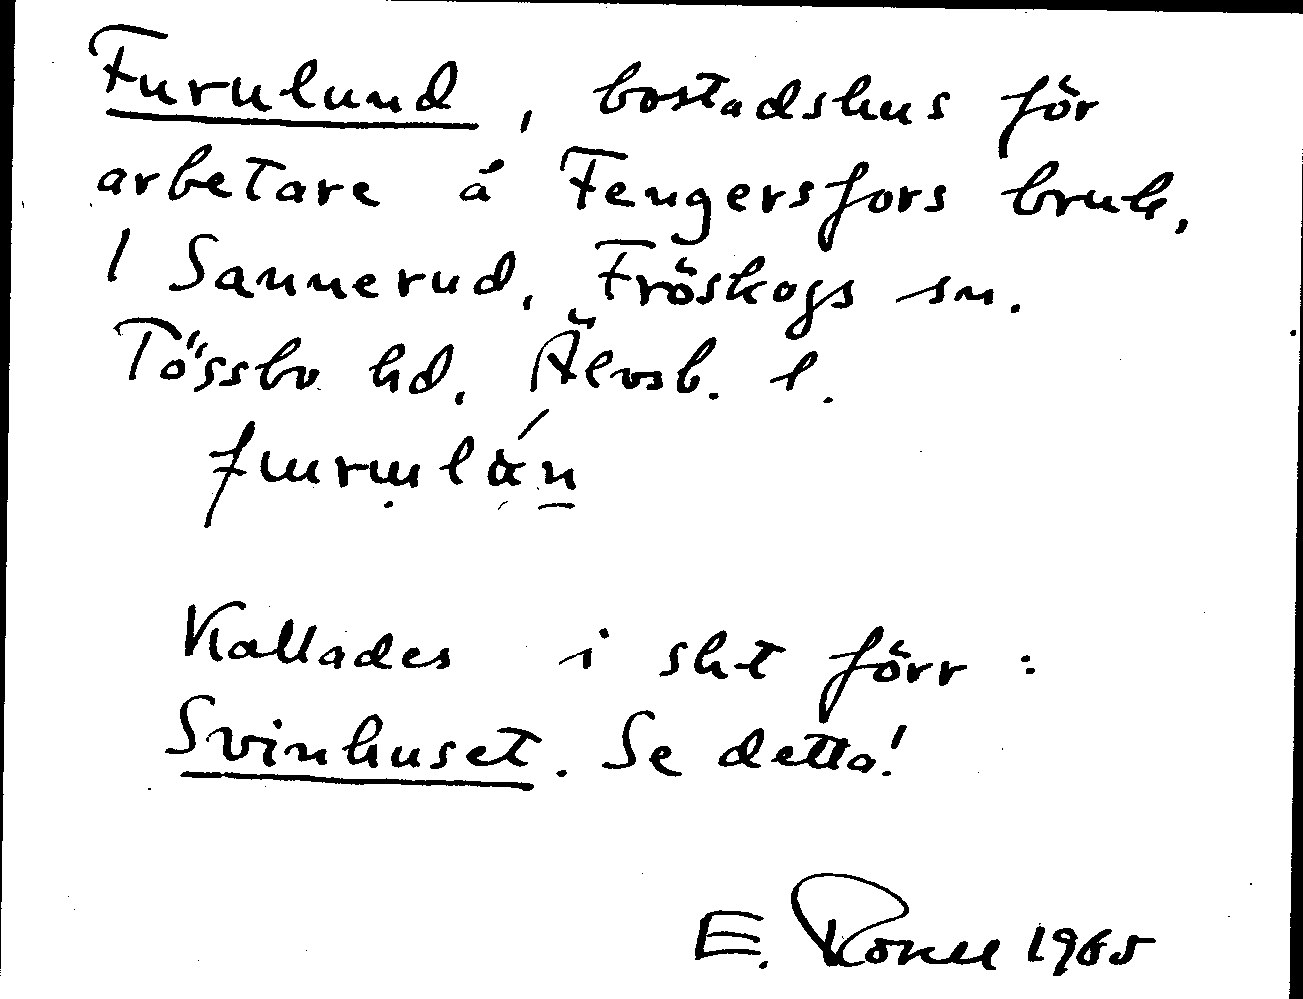 Furulund, bostadshus för
arbetare å Fengersfors bruk,
1 Sannerud, Fröskogs sn.
Tössbo hd, Älvsb. l.
furulán
Kallades i skt förr:
Svinhuset. Se detta!
E. 1965